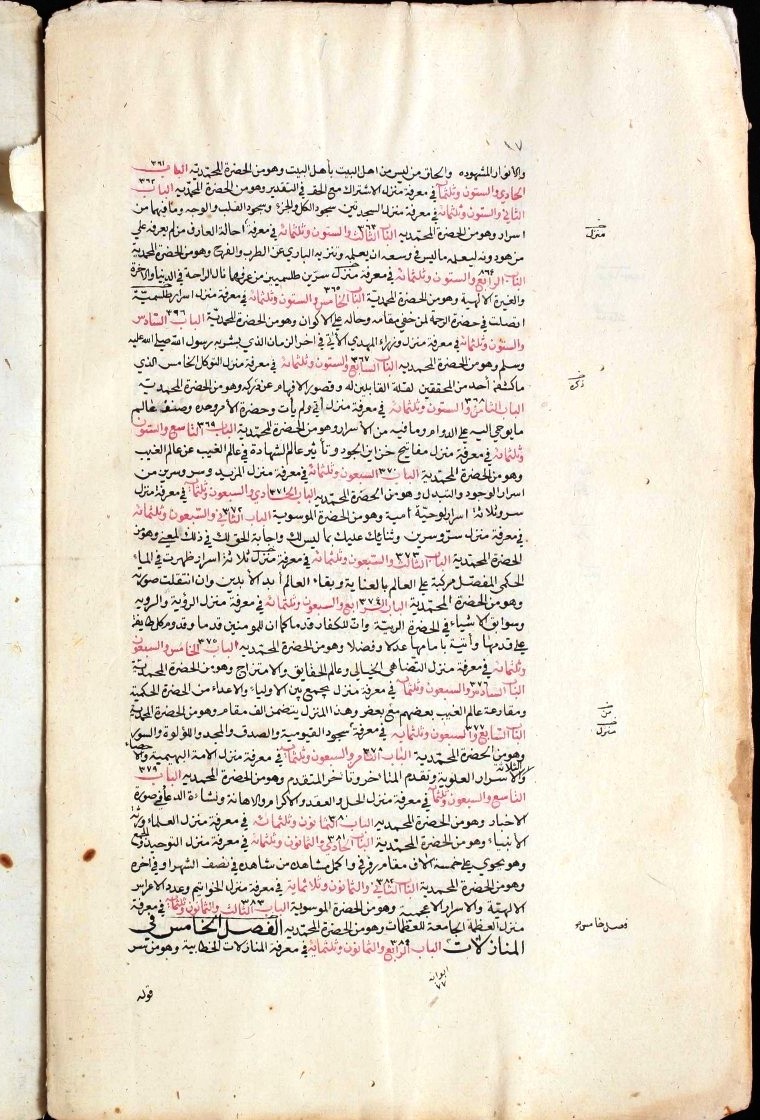 ١٧
والانوار المشهوده والحاق من ليس من اهل البيت بأهل البيت وهو من الحضرة المحمدية الباب ٣٦١
الحادى والستون وثلثمائة فى معرفة منزل الاشتراك مع الحق فى التقدير وهو من الحضرة المحمدية الباب ٣٦٢
الثانى والستون وثلثمائة فى معرفة منزل السجدتين سجود الكل والجزء وسجود القلب والوجه وما فيهما من
اسرار وهو من الحضرة المحمدية الباب ٣٦٣ الثالث والستون وثلثمائة فى معرفة احالة العارف من لم يعرفه على
من هو دونه ليعلمه ما ليس فى وسعه ان يعلمه وتنزيه البارى عن الطرب والفرح وهو من الحضرة المحمدية
الباب ٨٦٤ الرابع والستون وثلثمائة فى معرفة منزل سرين طلسميين من عرفهما نال الراحة فى الدنيا والاخرة
والغيرة الالهية وهو من الحضرة المحمدية الباب ٣٦٥ الخامس والستون وثلثمائة فى معرفة منزل اسرار طلسمية
اتصلت فى حضرة الرحمة لمن خفى مقامه وحاله على الاكوان وهو من الحضرة المحمدية الباب ٣٩٦ السادس
والستون وثلثمائة فى معرفة منزل وزراء المهدى الآتى فى اخر الزمان الذى بشر به رسول الله صلى الله عليه
وسلم وهو من الحضرة المحمدية الباب ٣٦٧ السابع والستون وثلثمائة فى معرفة منزل التوكل الخامس الذى
ما كشفه أحد من المحققين لقلة القابلين له وقصور الافهام عن دركه وهو من الحضرة المحمدية
الباب ٣٦٨ الثامن والستون وثلثمائة فى معرفة منزل أتى ولم يأت وحضرة الأمر وحده وصنف عالم
ما يوحى اليه على الدوام وما فيه من الأسرار وهو من الحضرة المحمدية الباب ٣٦٩ التاسع والستون
وثلثمائة فى معرفة منزل مفاتيح خزاين الجود وتأثير عالم الشهادة فى عالم الغيب عن عالم الغيب
وهو من الحضرة المحمدية الباب ٣٧٠ السبعون وثلثمائة فى معرفة منزل المزيد وسر وسرين من
اسرار الوجود والتبدل وهو من الحضرة المحمدية الباب ٣٧١ الحادى والسبعون وثلثمائة فى معرفة منزل
سر وثلاثة اسرار لوحية أمية وهو من الحضرة الموسوية الباب ٣٧٢ الثانى والسبعون وثلثمائة
فى معرفة منزل سر وسرين وثنائك عليك بما ليس لك واجابة الحق لك فى ذلك لمعنى وهو من
الحضرة المحمدية الباب ٣٧٣ الثالث والسبعون وثلثمائة فى معرفة منزل ثلاثة اسرار ظهرت فى الماء
الحكمى المفصل مركبة على العالم بالعناية وبقاء العالم أبد الأبدين وان انتقلت صورته
وهو من الحضرة المحمدية الباب ٣٧٤ الرابع والسبعون وثلثمائة فى معرفة منزل الرؤية والروية
وسوابق الاشياء فى الحضرة الربية وان للكفار قدما كما ان للمومنين قدما وقدوم كل طايفة
على قدمها وآتية بامامها عدلا وفضلا وهو من الحضرة المحمدية الباب ٣٧٥ الخامس والسبعون
وثلثمائة فى معرفة منزل التضاهى الخيالى وعالم الحقايق والامتزاج وهو من الحضرة المحمدية
الباب ٣٧٦ السادس والسبعون وثلثمائة فى معرفة منزل يجمع بين الاولياء والاعداء من الحضرة الحكمية
ومقارعة عالم الغيب بعضهم مع بعض وهذا المنزل يتضمن الف مقام وهو من الحضرة المحمدية
الباب ٣٧٧ السابع والسبعون وثلثمائة فى معرفة سجود القيومية والصدق والمجد واللؤلوة والسور
وهو من الحضرة المحمدية الباب ٣٧٨ الثامن والسبعون وثلثمائة فى معرفة منزل الامة البهيمية والاحصاء
والثلاثة الاسرار العلوية وتقدم المتاخر وتأخر المتقدم وهو من الحضرة المحمدية الباب ٣٧٩
التاسع والسبعون وثلثمائة فى معرفة منزل الحل والعقد والاكرام والاهانة ونشاءة الدعا فى صورة
الاخبار وهو من الحضرة المحمدية الباب ٣٨٠ الثمانون وثلثمائة فى معرفة منزل العلماء ورثة
الانبياء وهو من الحضرة المحمدية الباب ٣٨١ الحادى والثمانون وثلثمائة فى معرفة منزل التوحيد والجمع
وهو يحوى على خمسة الاف مقام رفرفى واكمل مشاهده من شاهده فى نصف الشهر او فى اخره
وهو من الحضرة المحمدية الباب ٣٨٢ الثانى والثمانون وثلاثماية فى معرفة منزل الخواتيم وعدد الاعراس
الالهية والاسرار الاعجمية وهو من الحضرة الموسوية الباب ٣٨٣ الثالث والثمانون وثلثمائة فى معرفة
منزل العظمة الجامعة للعظمات وهو من الحضرة المحمدية الفصل الخامس فى
المنازلات الباب ٣٨٤ الرابع والثمانون وثلثمائة فى معرفة المنازلات الخطابية وهو من سر
قوله
منزل
منزل
فصل خامس